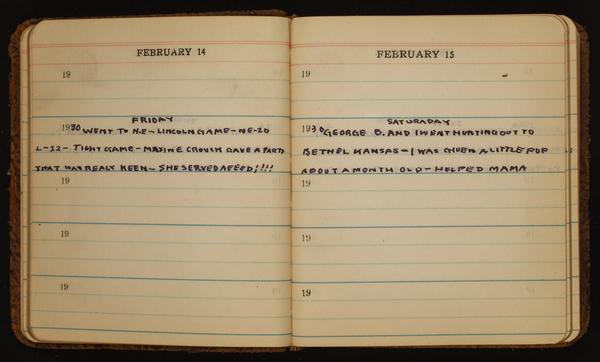 FEBRUARY 14
19
FRIDAY
1930 WENT TO N.E - LINCOLN GAME - NE-20
L-22 - TIGHT GAME - MAXINE CROUCH GAVE A PARTY
THAT WAS REALY KEEN - SHE SERVED A FEED;!!!
19
19
19
FEBRUARY 15
19
SATURADAY
1930 GEORGE B. AND I WENT HUNTING OUT TO
BETHEL KANSAS - I WAS GIVEN A LITTLE PUP
ABOUT A MONTH OLD - HELPED MAMA
19
19
19